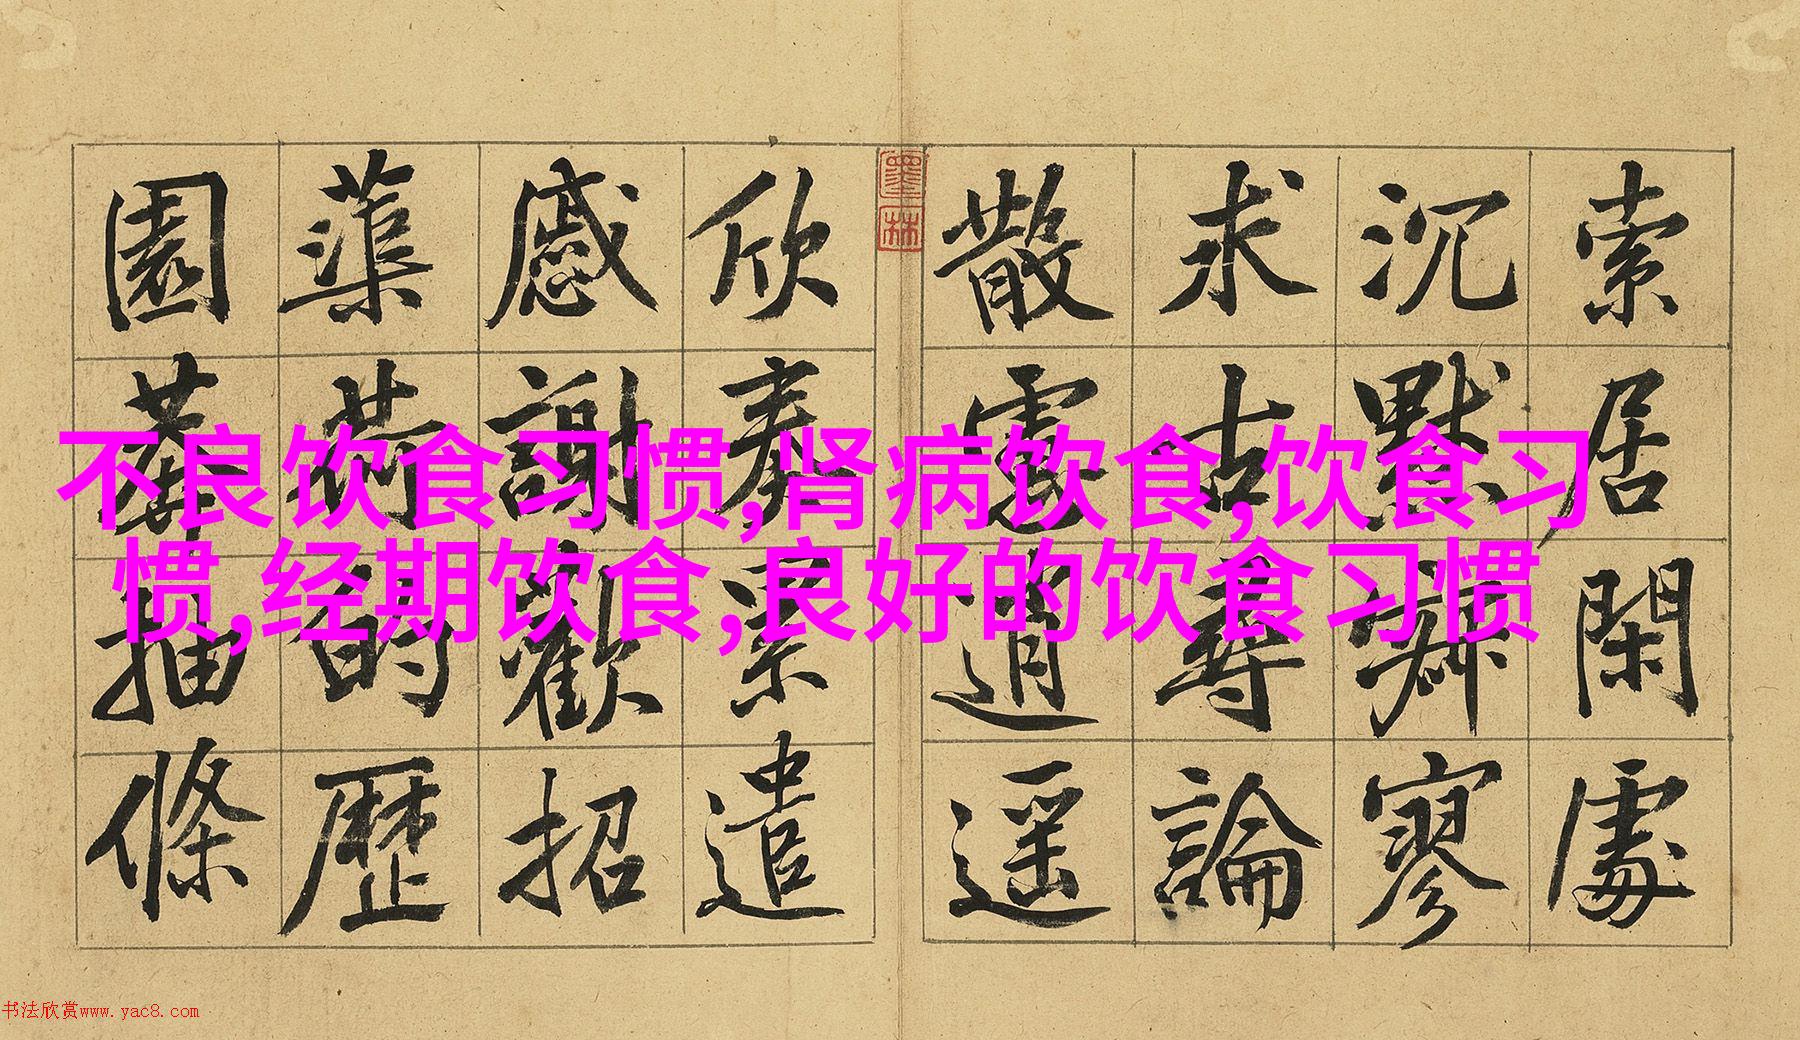 索居閑處
沉默寂寥
求古尋論
散慮逍遥
欣奏累遣
慼謝歡招
蕖荷的歷
園莽抽條
墨林
不良饮食习惯,肾病饮食,饮食习
惯,经期饮食,良好的饮食习惯
书法欣赏www.yac8.com